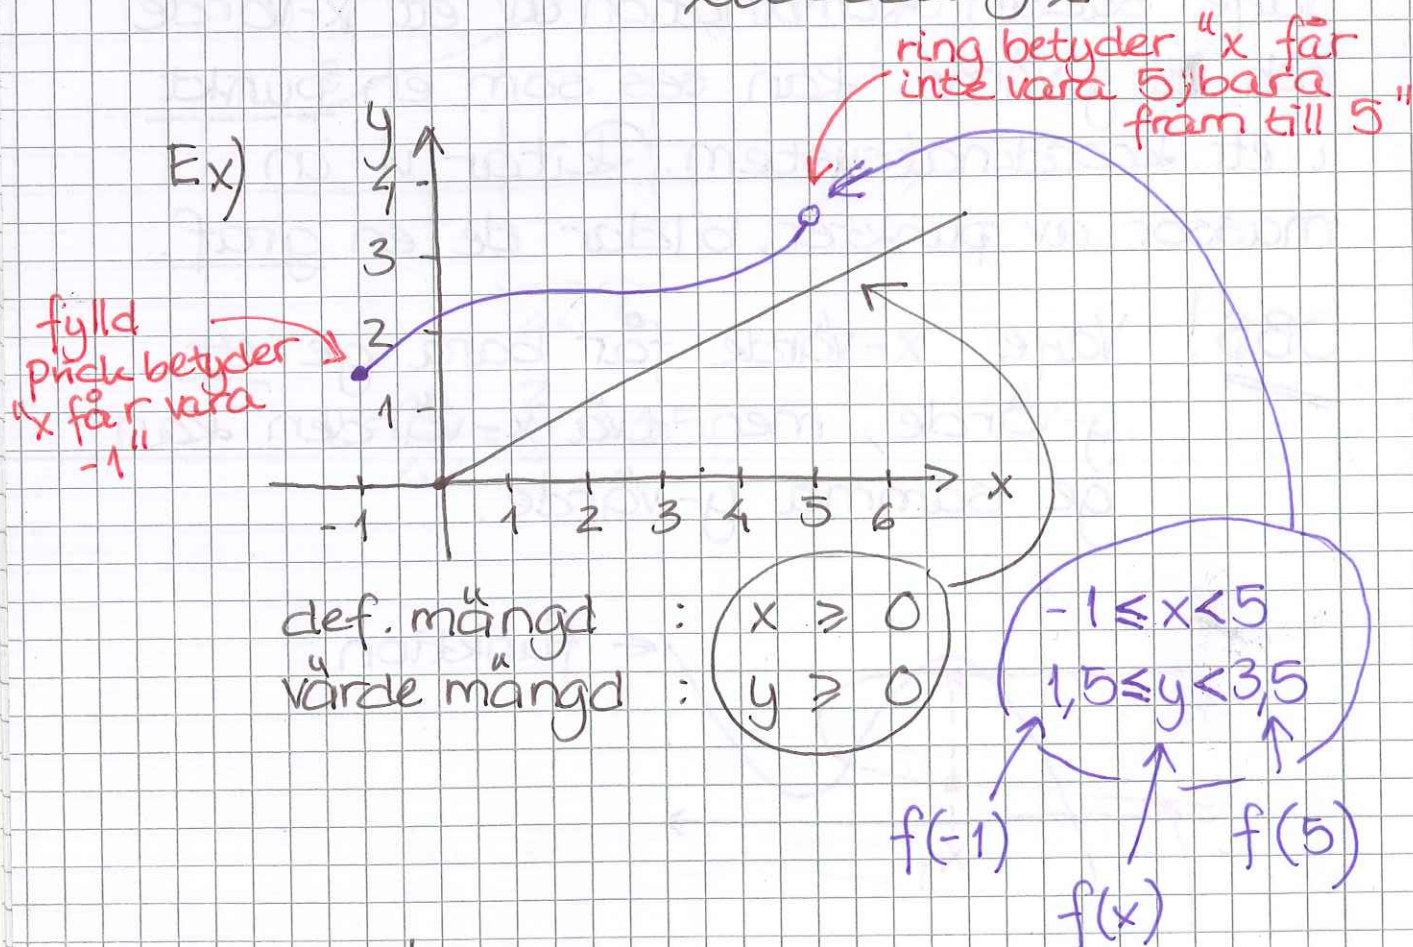 ring betyder "x får
inte vara 5, bara
fram till 5"
Ex)
y
4
3
2
1
fylld
prick betyder
"x får vara
-1"
-1 1 2 3 4 5 6 x
def. mängd : x ≥ 0 -1 ≤ x < 5
värde mängd : y ≥ 0 1,5 ≤ y < 3,5
f(-1) f(x) f(5)